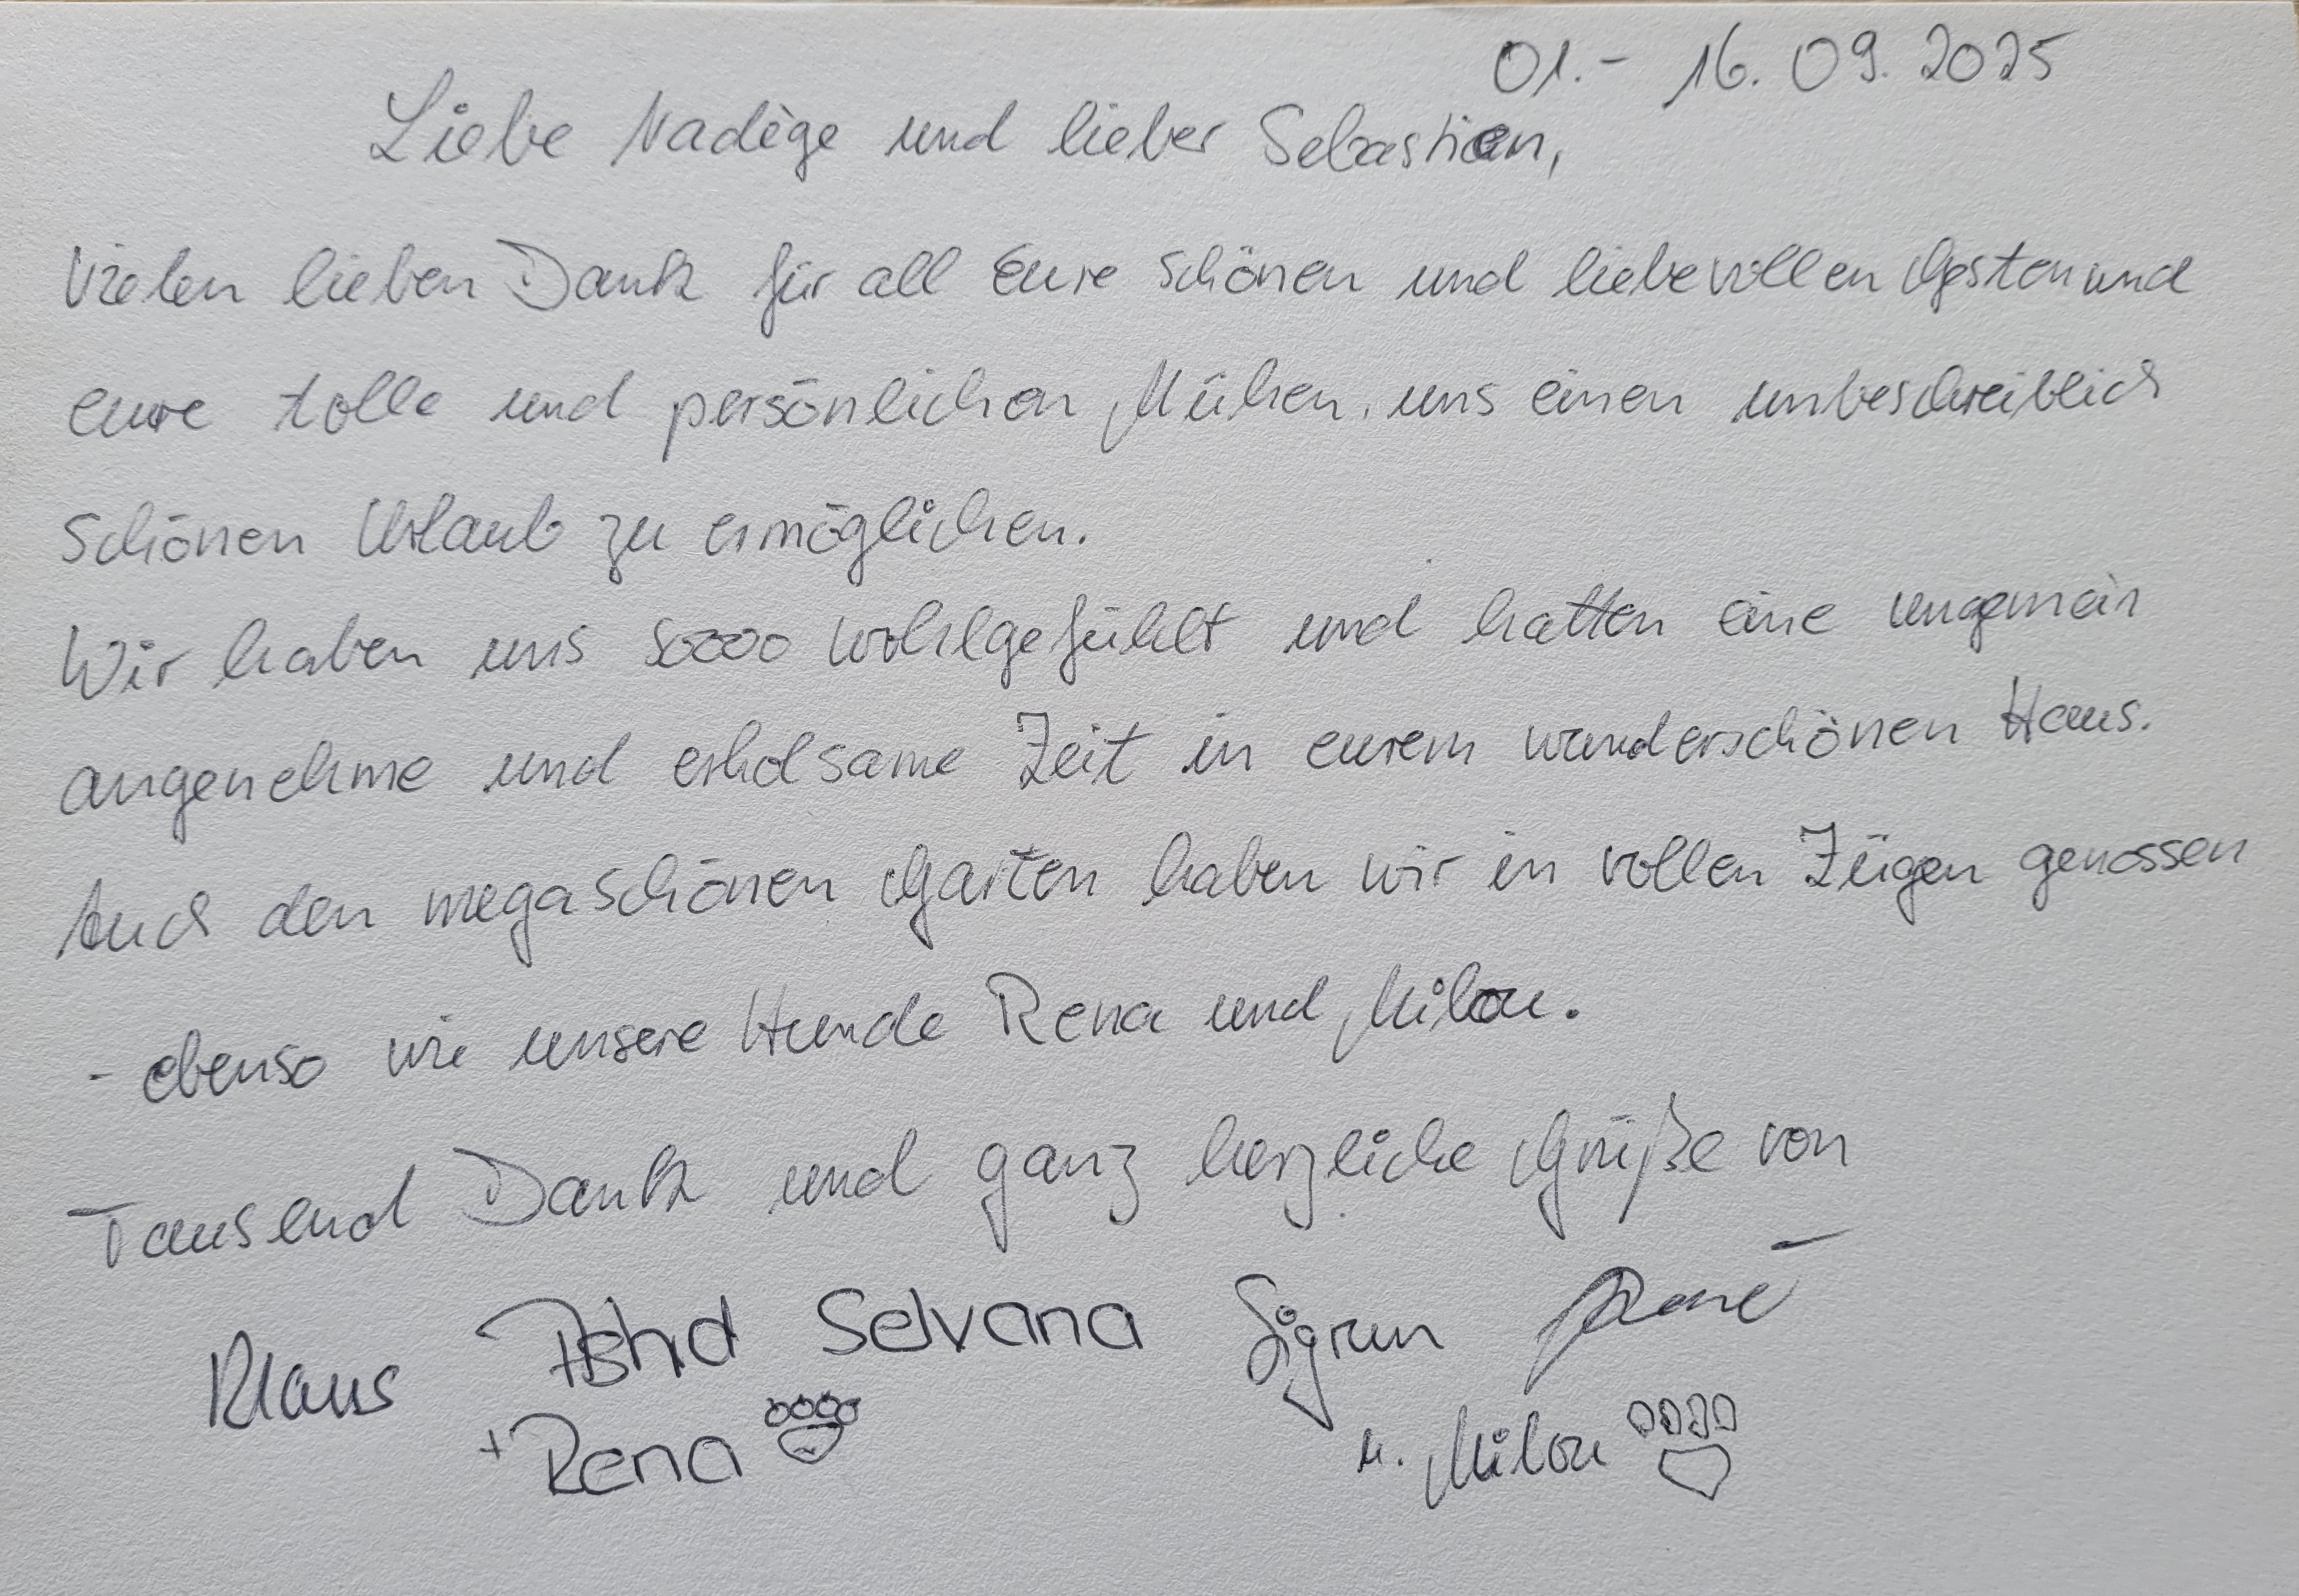 01.- 16.09.2025
Liebe Nadège und lieber Sebastien,
Vielen lieben Dank für all Eure schönen und liebevollen Gesten und
eure tolle und persönlichen Mühen, uns einen unbeschreiblich
schönen Urlaub zu ermöglichen.
Wir haben uns soooo wohlgefühlt und hatten eine ungemein
angenehme und erholsame Zeit in eurem wunderschönen Haus.
Auch den megaschönen Garten haben wir in vollen Zügen genossen
- ebenso wie unsere Hunde Rena und Milou.
Tausend Dank und ganz herzliche Grüße von
Klaus Astrid Selvana Sigrun René
+ Rena u. Milou